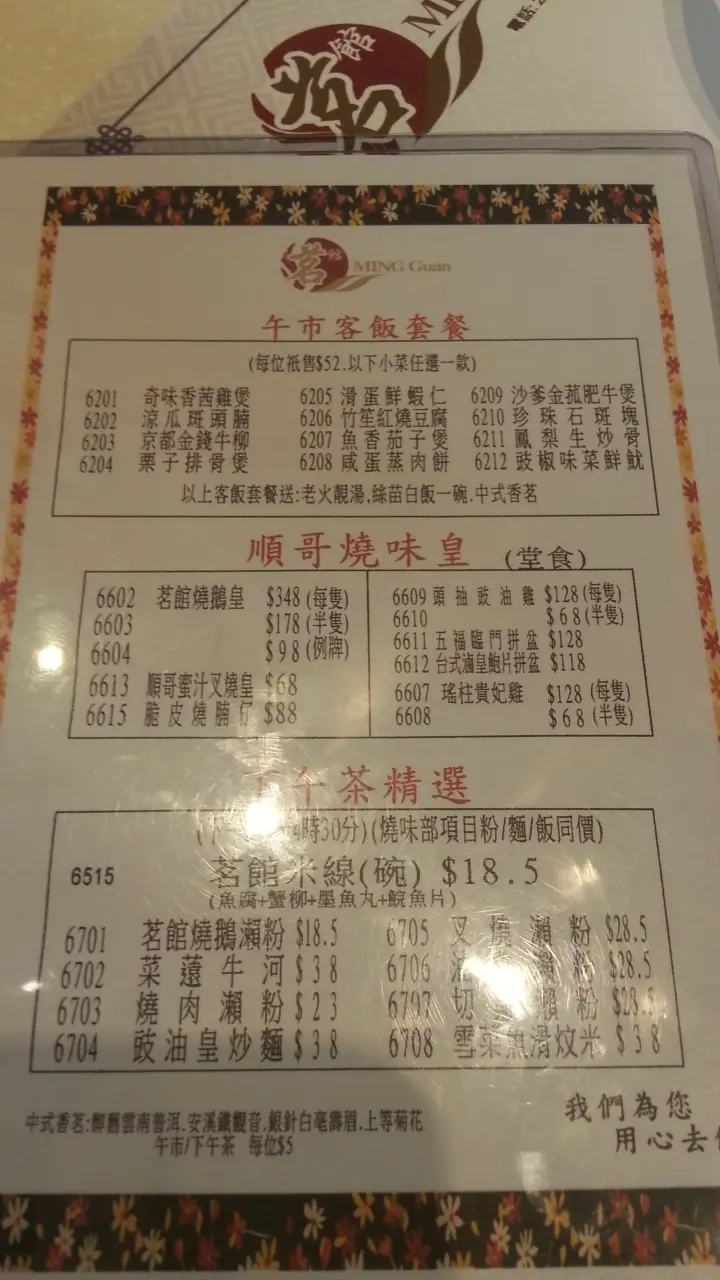 茗館
MIN
電話: 2
茗館 MING Guan
午市客飯套餐
(每位衹售$52.以下小菜任選一款)
6201 奇味香茜雞煲 6205 滑蛋鮮蝦仁 6209 沙爹金菰肥牛煲
6202 涼瓜斑頭腩 6206 竹笙紅燒豆腐 6210 珍珠石斑塊
6203 京都金錢牛柳 6207 魚香茄子煲 6211 鳳梨生炒骨
6204 栗子排骨煲 6208 咸蛋蒸肉餅 6212 豉椒味菜鮮魷
以上客飯套餐送:老火靚湯,絲苗白飯一碗.中式香茗
順哥燒味皇 (堂食)
6602 茗館燒鵝皇 $348(每隻)
6603 $178(半隻)
6604 $98(例牌)
6613 順哥蜜汁叉燒皇 $68
6615 脆皮燒腩仔 $88
6609 頭抽豉油雞 $128(每隻)
6610 $68(半隻)
6611 五福臨門拼盆 $128
6612 台式滷皇鮑片拼盆 $118
6607 瑤柱貴妃雞 $128(每隻)
6608 $68(半隻)
下午茶精選
(下 4時30分)(燒味部項目粉/麵/飯同價)
6515 茗館米線(碗) $18.5
(魚腐+蟹柳+墨魚丸+鯇魚片)
6701 茗館燒鵝瀨粉 $18.5 6705 叉燒瀨粉 $28.5
6702 菜薳牛河 $38 6706 瀨粉 $28.5
6703 燒肉瀨粉 $23 6707 切 瀨粉 $28.5
6704 豉油皇炒麵 $38 6708 雪菜魚滑炆米 $38
中式香茗:醉舊雲南普洱.安溪鐵觀音.銀針白毫壽眉.上等菊花
午市/下午茶 每位$5
我們為您
用心去